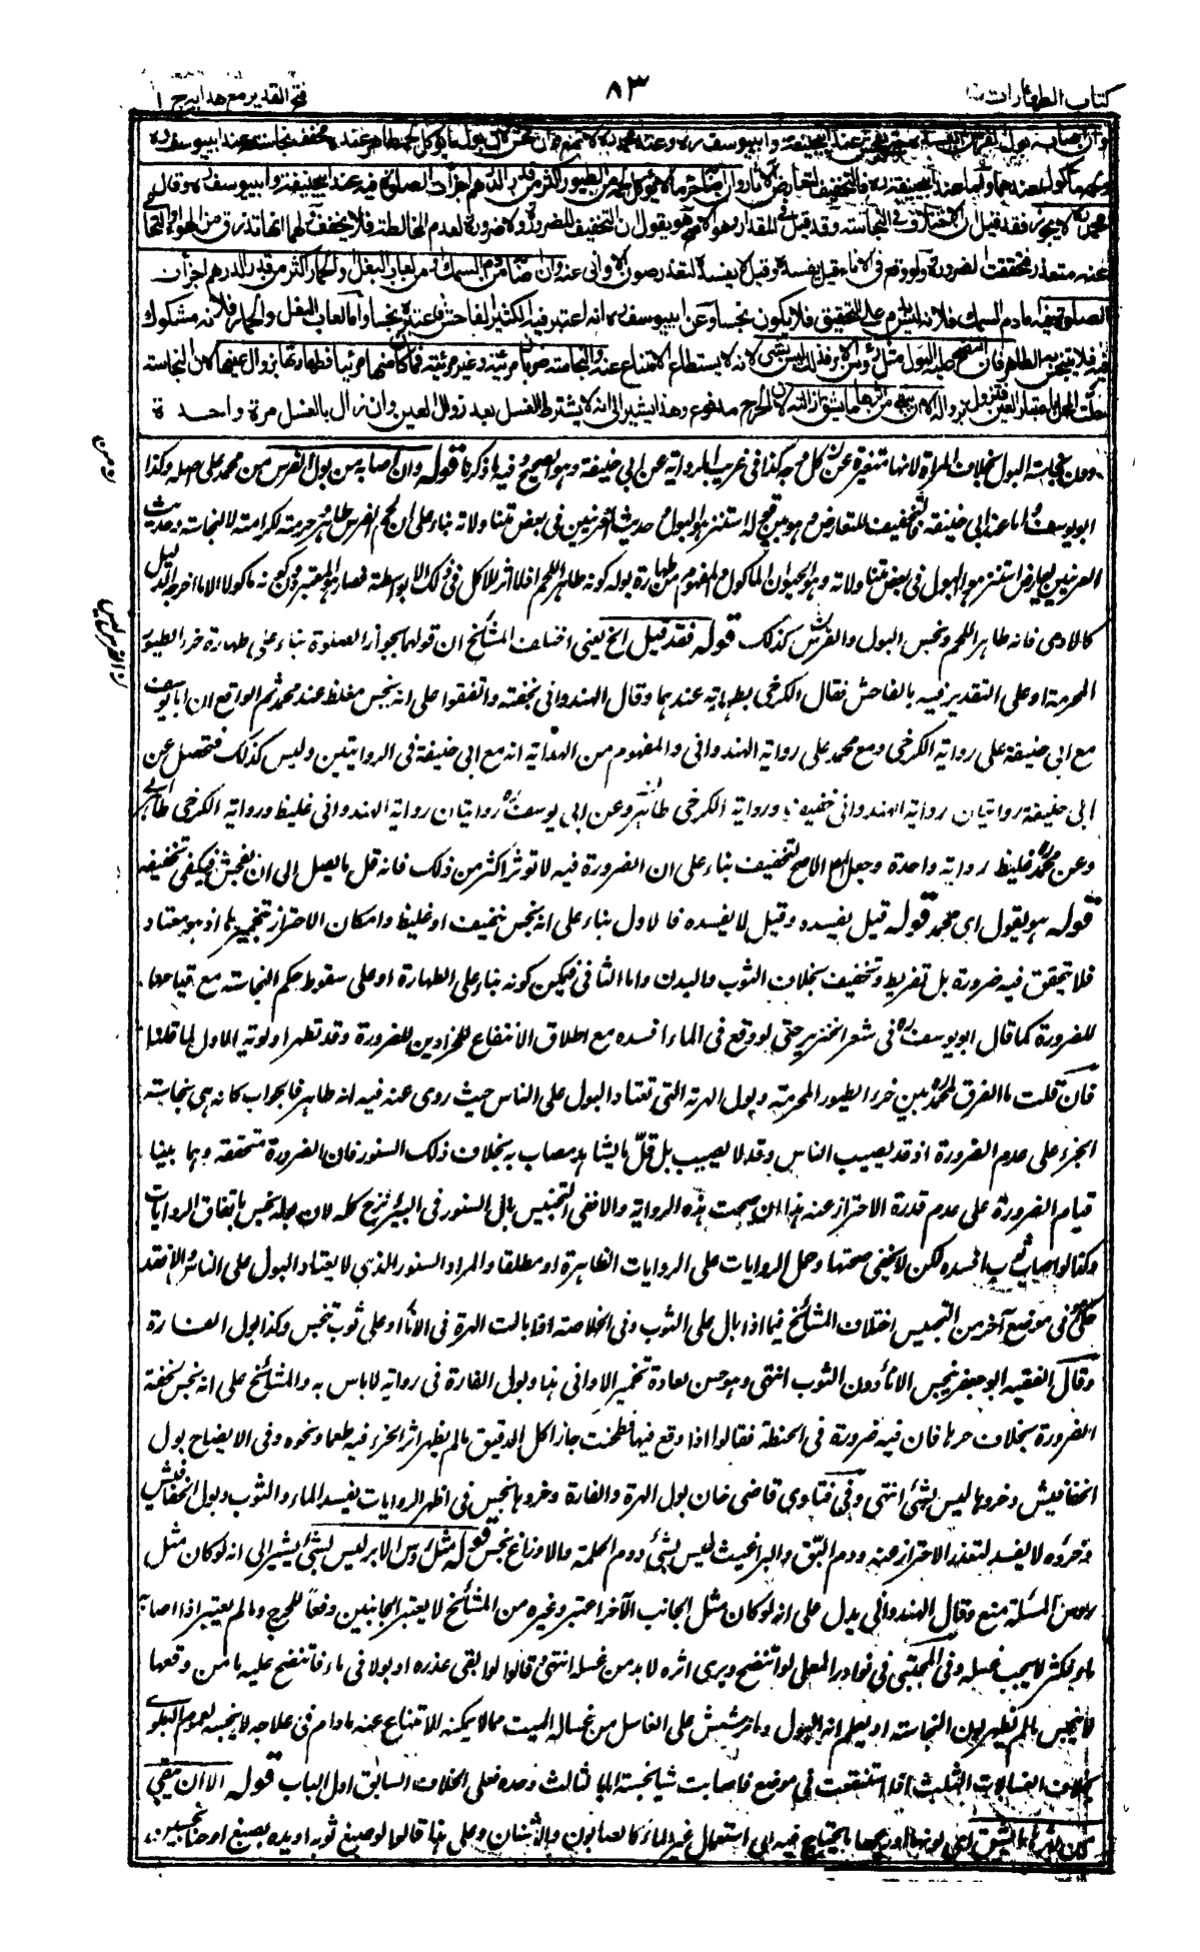 كتاب الطهارات
٨٣
فتح القدير مع هدايه ج ١
وان اصابه بول الفرس لم يفسده حتى يفحش عند ابيحنيفة وابييوسف ره وعند محمد ره لا يمنع وان فحش لان بول ما يوكل لحمه طاهر عنده مخفف نجاسته عند ابييوسف ره
ولحمه ماكول عندهما واما عند ابيحنيفة ره فالتخفيف لتعارض الآثار وان اصابه خرء ما لا يؤكل لحمه من الطيور اكثر من قدر الدرهم اجزأت الصلوة فيه عند ابيحنيفة وابييوسف ره وقال
محمد ره لا يجوز فقد قيل ان الاختلاف في النجاسة وقد قيل في المقدار وهو الاصح هو يقول ان التخفيف للضرورة ولا ضرورة لعدم المخالطة فلا يخفف ولهما انها تذرق من الهواء والتحامى
عنه متعذر فتحققت الضرورة ولو وقع في الاناء قيل يفسده وقيل لا يفسده لتعذر صون الاواني عنه وان اصابه من دم السمك او من لعاب البغل والحمار اكثر من قدر الدرهم اجزأت
الصلوة فيه اما دم السمك فلانه ليس بدم على التحقيق فلا يكون نجسا وعن ابييوسف ره انه اعتبر فيه الكثير الفاحش فاعتبره نجسا واما لعاب البغل والحمار فلانه مشكوك
فيه فلا يتنجس به الطاهر فان انتضح عليه البول مثل رؤس الابر فذلك ليس بشئ لانه لا يستطاع الامتناع عنه والنجاسة ضربان مرئية وغير مرئية فما كان منها مرئيا فطهارتها بزوال عينها لان النجاسة
حلت المحل باعتبار العين فتزول بزواله الا ان يبقى من اثرها ما يشق ازالته لان الحرج مدفوع وهذا يشير الى انه لا يشترط الغسل بعد زوال العين وان زال بالغسل مرة واحدة
دون نجاسة البول بخلاف المرأة لانها متنقية عن كل وجه كذا في غريب الرواية عن ابي حنيفة وهو الصحيح وفيه ما ذكرنا قوله وان اصابه من بول الفرس من محمد على اصله وكذا
ابو يوسف ره اما عند ابي حنيفة فالتخفيف للتعارض وهو بين قوله استنزهوا البول وحديث العرنيين في بعض متناولاته بناء على ان لحم الفرس طاهر وحرمته لكرامته لا لنجاسته وحديث
العرنيين يعارض استنزهوا البول في بعض متناولاته وهو الحيوان الماكول والمفهوم من طهارة بوله كونه طاهر اللحم اذ لا اثر للاكل في ذلك الا بواسطة فصار هو المعتبر دون كونه ماكولا الا ما اخرجه الدليل
كالادمى فانه طاهر اللحم ونجس البول والفرس كذلك قوله فقد قيل الخ يعني اختلف المشائخ ان قولهما بجواز الصلوة بناء على طهارة خرء الطيور
المحرمة او على التقدير فيه بالفاحش فقال الكرخى بطهارته عندهما وقال الهندوانى بخفته واتفقوا على انه نجس مغلظ عند محمد ثم الواقع ان ابا يوسف
مع ابي حنيفة على رواية الكرخى ومع محمد على رواية الهندوانى والمفهوم من الهداية انه مع ابي حنيفة في الروايتين وليس كذلك فتحصل عن
ابى حنيفة روايتان رواية الهندوانى خفيف ورواية الكرخى طاهر وعن ابى يوسف ره روايتان رواية الهندوانى غليظ ورواية الكرخى طاهر
وعن محمد ره غليظ رواية واحدة وجعل الاصح التخفيف بناء على ان الضرورة فيه لا توثر اكثر من ذلك فانه قل ما يصل الى ان يفحش فيكفى تخفيفه
قوله هو يقول اى محمد قوله قيل يفسده وقيل لا يفسده فالاول بناء على انه نجس خفيف او غليظ وامكان الاحتراز بتخميرها اذ هو معتاد
فلا تتحقق فيه ضرورة بل تفريط وتخفيف بخلاف الثوب والبدن واما الثانى فيمكن كونه بناء على الطهارة او على سقوط حكم النجاسة مع قيامها
للضرورة كما قال ابو يوسف ره فى شعر الخنزير حتى لو وقع فى الماء افسده مع اطلاق الانتفاع للخرازين للضرورة وقد تظهر اولوية الاول لما قلنا
فان قلت ما الفرق لمحمد ره بين خرء الطيور المحرمة وبول الهرة التى تعتاد البول على الناس حيث روى عنه فيه انه طاهر فالجواب كانه هى نجاسة
الخرء على عدم الضرورة اذ قد يصيب الناس وقد لا يصيب بل قل ما يشاهد مصاب به بخلاف ذلك السنور فان الضرورة متحققة وبهما بينا
قيام الضرورة على عدم قدرة الاحتراز عنه هذا ان صحت هذه الرواية والا ففى التجنيس بال السنور فى البئر نزح كله لان بوله نجس باتفاق الروايات
وكذا لو اصاب الثوب افسده لكن لا يخفى صحتها وحمل الروايات على الروايات الظاهرة او مطلقا والمراد السنور الذى لا يعتاد البول على الناس والا فقد
حكى فى موضع آخر من التجنيس اختلاف المشائخ فيما اذا بال على الثوب وفى الخلاصة اذا بالت الهرة فى الاناء او على ثوب تنجس وكذا بول الفارة
وقال الفقيه ابو جعفر ينجس الاناء دون الثوب انتهى وهو حسن لعادة تخمير الاوانى هذا وبول الفارة فى رواية لا باس به والمشائخ على انه نجس لخفة
الضرورة بخلاف خرئها فان فيه ضرورة فى الحنطة فقالوا اذا وقع فيها فطحنت جاز اكل الدقيق ما لم يظهر اثر الخرء فيه طعما ونحوه وفى الايضاح بول
الخفافيش وخروها ليس بشئ انتهى وفى فتاوى قاضى خان بول الهرة والفارة وخروها نجس فى اظهر الروايات يفسد الماء والثوب وبول الخفافيش
وخرؤه لا يفسد لتعذر الاحتراز عنه ودم البق والبراغيث ليس بشئ ودم الحلمة والاوزاغ نجس قوله مثل رؤس الابر ليس بشئ يشير الى انه لو كان مثل
رؤس المسلة منع وقال الهندوانى يدل على انه لو كان مثل الجانب الآخر اعتبر وغيره من المشائخ لا يعتبر الجانبين دفعا للحرج وما لم يعتبر اذا اصابه
ماء فكثر لا يجب غسله وفى المجتبى فى نوادر المعلى لو انتضح ويرى اثره لا بد من غسله انتهى وقالوا لو القى عذرة او بولا فى ماء فانتضح عليه ماء من وقعها
لا ينجس ما لم يظهر لون النجاسة او يعلم انه البول وما ترشش على الغاسل من غسالة الميت مما لا يمكنه الامتناع عنه ما دام فى علاجه لا ينجسه لعموم البلوى
بخلاف الغسالات الثلث اذا استنقعت فى موضع فاصابت شيا نجسته اما الثالث وحده فعلى الخلاف السابق اول الباب قوله الا ان يبقى
من اثرها ما يشق اى لونها او ريحها ما يحتاج فيه الى استعمال غير الماء كالصابون والاشنان وعلى هذا قالوا لو صبغ ثوبه او يده بصبغ او حناء نجسين